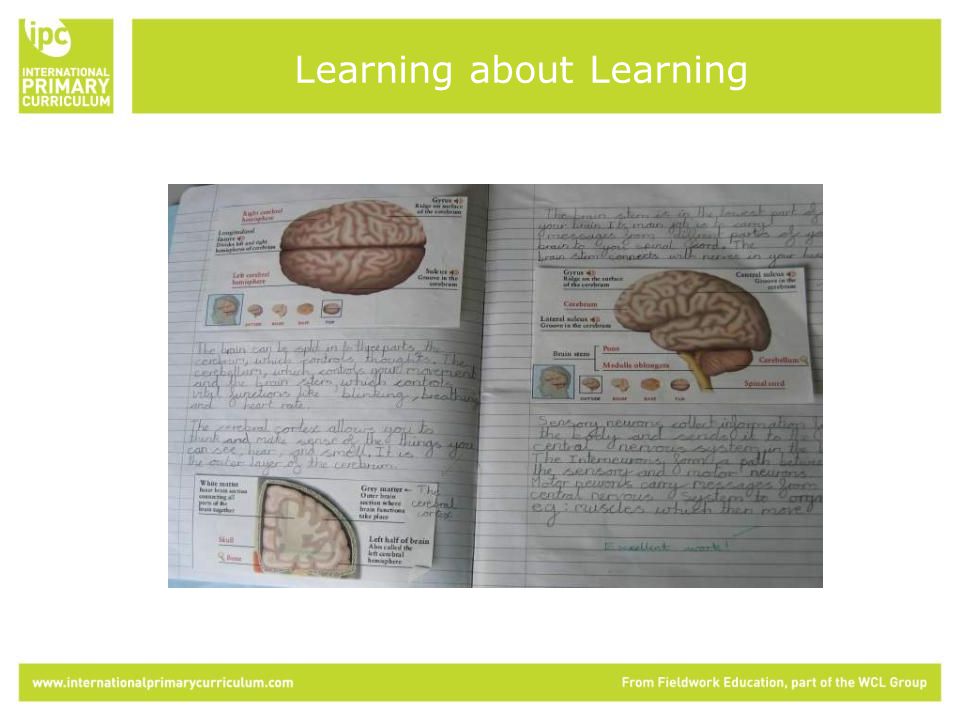 ipc
INTERNATIONAL
PRIMARY
CURRICULUM
Learning about Learning
Right cerebral
hemisphere
Gyrus
Ridge on surface
of the cerebrum
Longitudinal
fissure
Divides left and right
hemispheres of cerebrum
Left cerebral
hemisphere
Sulcus
Groove in the
cerebrum
OUTSIDE INSIDE BASE TOP
The brain can be split in to three parts, the
cerebrum, which controls thoughts. The
cerebellum, which controls your movement
and the brain stem which controls
vital functions like blinking, breathing
and heart rate.
The cerebral cortex allows you to
think and make sense of the things you
can see, hear, and smell. It is
the outer layer of the cerebrum.
White matter
Inner brain section
connecting all
parts of the
brain together
Grey matter
Outer brain
section where
brain functions
take place
The
cerebral
cortex
Skull
Bone
Left half of brain
Also called the
left cerebral
hemisphere
The brain stem is in the lowest part of
your brain. Its main job is to carry
messages from different parts of
brain to your spinal
The
brain stem connects with nerves in your
Gyrus
Ridge on the surface
of the cerebrum
Central sulcus
Groove in the
cerebrum
Cerebrum
Lateral sulcus
Groove in the cerebrum
Brain stem
Pons
Medulla oblongata
Cerebellum
Spinal cord
OUTSIDE INSIDE BASE TOP
Sensory neurons collect information
the body and sends it to the
central nervous system in the
The Interneurons form a path between
the sensory and motor neurons.
Motor neurons carry messages from
central nervous system to
eg: muscles which then move
Excellent work!
www.internationalprimarycurriculum.com
From Fieldwork Education, part of the WCL Group